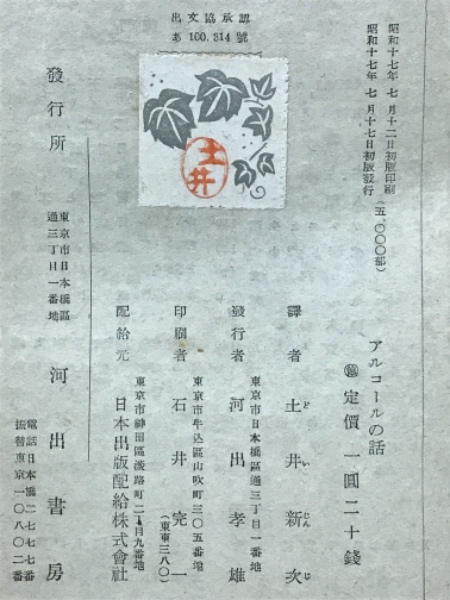 出文協承認
あ 100,314 號
昭和十七年 七月十二日初版印刷
昭和十七年 七月十七日初版發行
(五、〇〇〇部)
アルコールの話
定價 一圓二十錢
譯者 土井新次
どいしんじ
東京市日本橋區通三丁目一番地
發行者 河出孝雄
東京市牛込區山吹町三〇五番地
印刷者 石井完一
(東東三八〇)
東京市神田區淡路町二丁目九番地
配給元 日本出版配給株式會社
發行所
東京市日本橋區
通三丁目一番地
河出書房
電話日本橋二七七七番
振替東京一〇八〇二番
土井